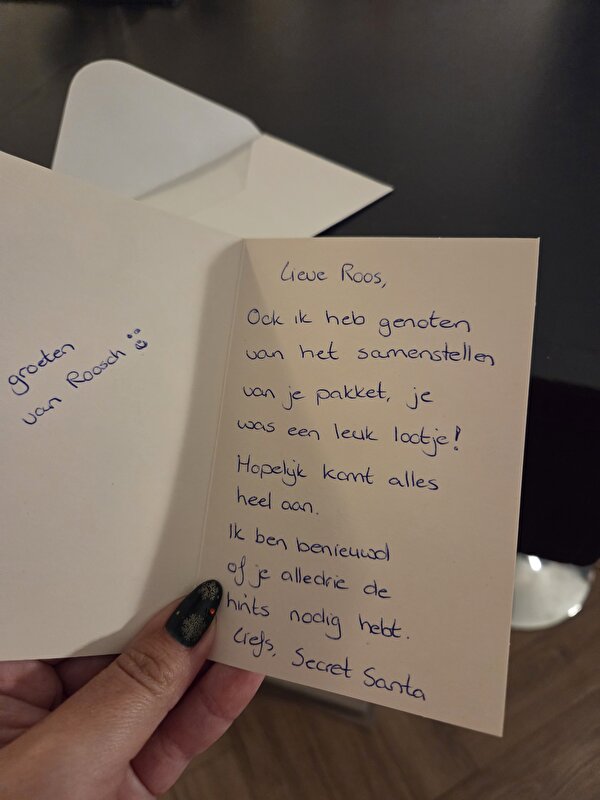 groeten
van Roosch
Lieve Roos,
Ook ik heb genoten
van het samenstellen
van je pakket, je
was een leuk lootje!
Hopelijk komt alles
heel aan.
Ik ben benieuwd
of je alledrie de
hints nodig hebt.
Liefs, Secret Santa